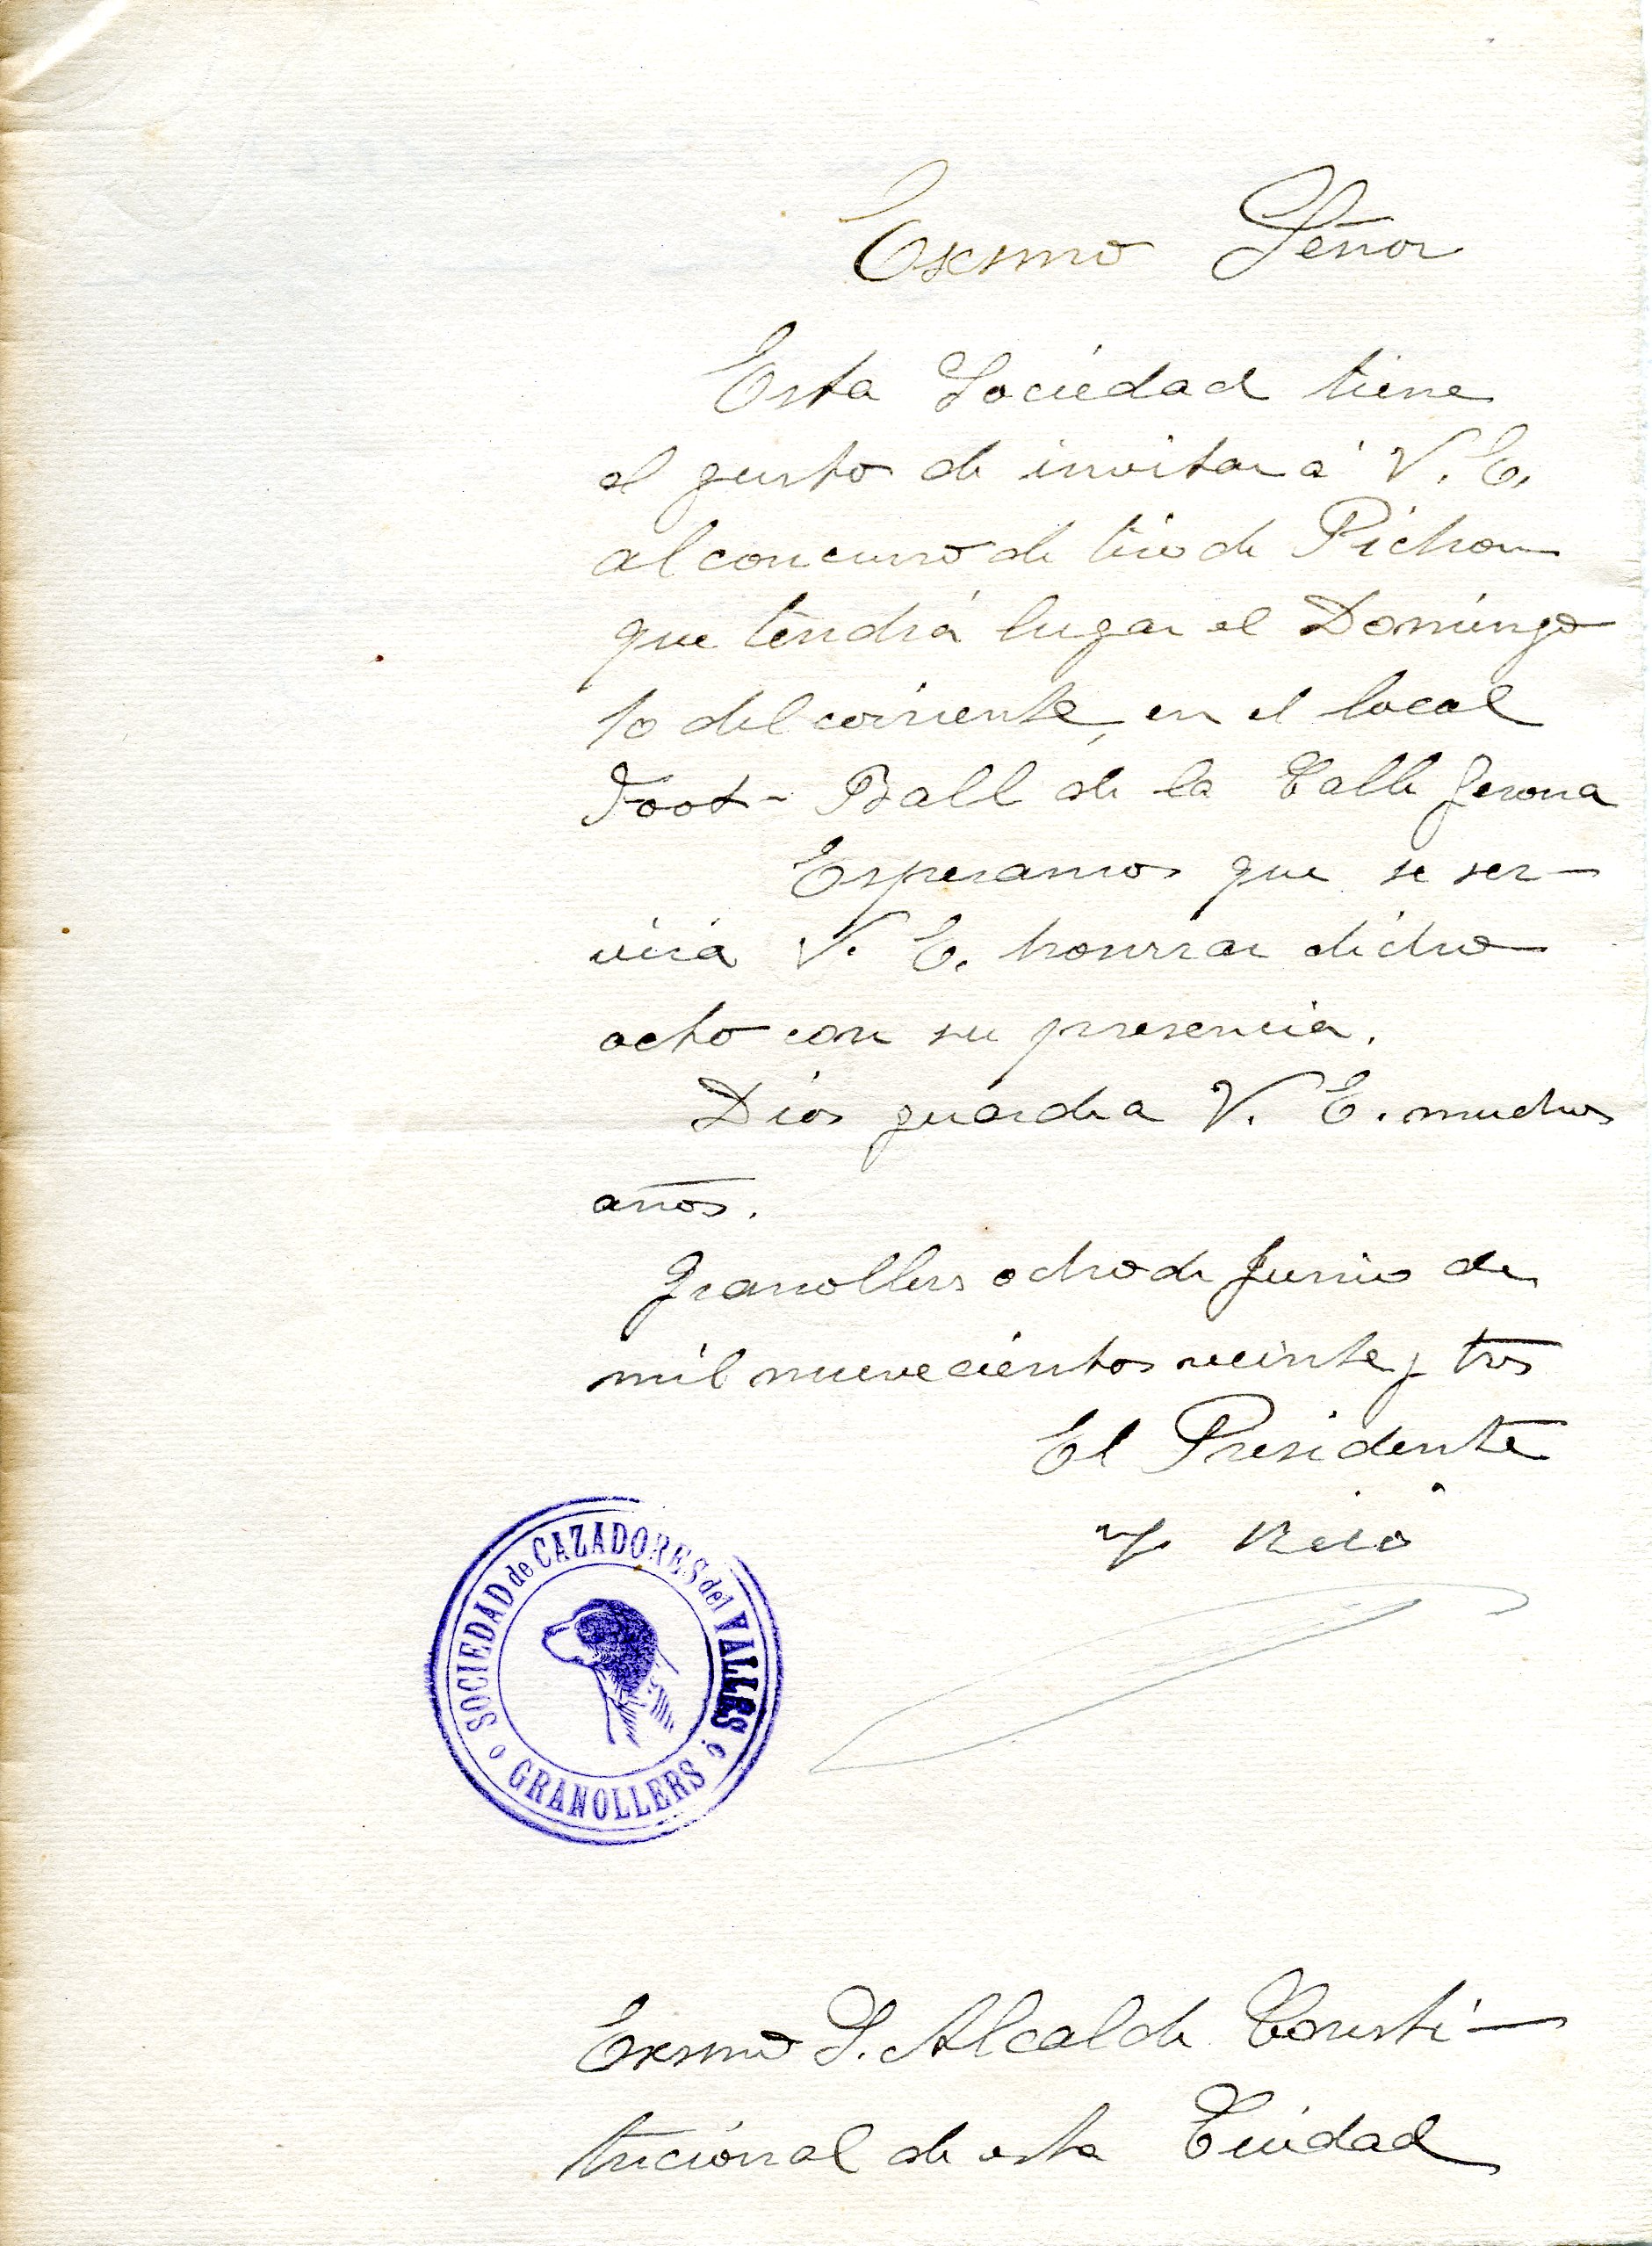 Exsmo Señor
Esta Sociedad tiene
el gusto de invitar á V. E.
al concurso de tiro de Pichon
que tendrá lugar el Domingo
10 del corriente, en el local
Foot-Ball de la Calle Gerona
Esperamos que se ser-
virá V. E. honrrar dicho
acto con su presencia.
Dios guarde a V. E. muchos
años.
Granollers ocho de Junio de
mil nuevecientos veinte y tres
El Presidente
SOCIEDAD de CAZADORES del VALLES
GRANOLLERS
Exsmo S. Alcalde Consti-
tucional de esta Ciudad